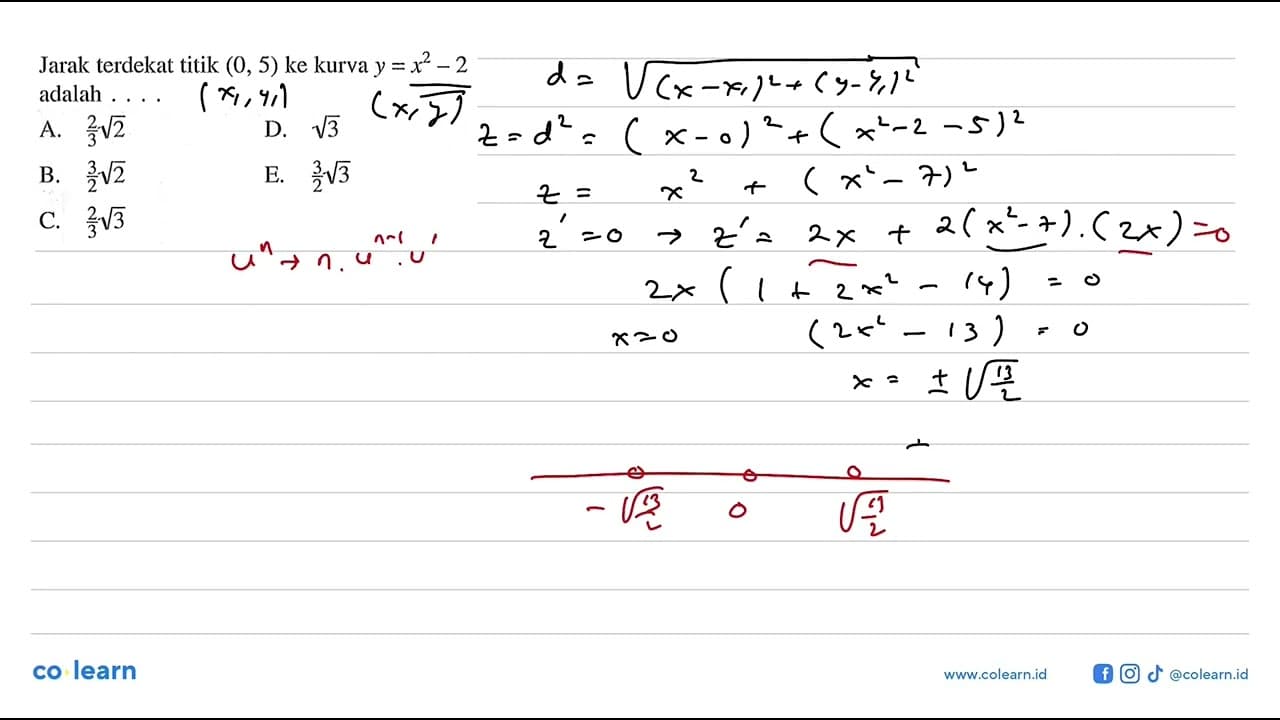 Jarak terdekat titik (0, 5) ke kurva y = x² – 2
adalah . . . .
(x₁, y₁)
(x, y)
A. 2/3√2
B. 3/2√2
C. 2/3√3
D. √3
E. 3/2√3
uⁿ → n. uⁿ⁻¹. u'
d = √(x - x₁)² + (y - y₁)²
z = d² = (x - 0)² + (x² - 2 - 5)²
z = x² + (x² - 7)²
z' = 0 → z' = 2x + 2(x² - 7). (2x) = 0
2x (1 + 2x² - 14) = 0
x = 0 (2x² - 13) = 0
x = ± √13/2
+
- √13/2 0 √13/2
co learn
www.colearn.id
@colearn.id